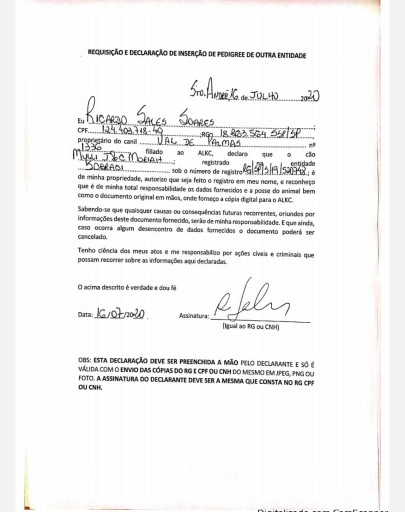 REQUISIÇÃO E DECLARAÇÃO DE INSERÇÃO DE PEDIGREE DE OUTRA ENTIDADE
Sto. André, 16 de JULHO 2020
Eu RICARDO SALES SOARES
CPF 124.403.718-40 ;RGº 18.283.564 SSP/SP
proprietário do canil VAL DE PALMAS nº
1336 filiado ao ALKC, declaro que o cão
registrado entidade
SOBRACI sob o número de registro ; é
de minha propriedade, autorizo que seja feito o registro em meu nome, e reconheço
que é de minha total responsabilidade os dados fornecidos e a posse do animal bem
como o documento original em mãos, onde forneço a cópia digital para o ALKC.
Sabendo-se que quaisquer causas ou consequências futuras recorrentes, oriundos por
informações deste documento fornecido, serão de minha responsabilidade. E que ainda,
caso ocorra algum desencontro de dados fornecidos o documento poderá ser
cancelado.
Tenho ciência dos meus atos e me responsabilizo por ações cíveis e criminais que
possam recorrer sobre as informações aqui declaradas.
O acima descrito é verdade e dou fé
Data: 16/07/2020 Assinatura:
(Igual ao RG ou CNH)
OBS: ESTA DECLARAÇÃO DEVE SER PREENCHIDA A MÃO PELO DECLARANTE E SÓ É
VÁLIDA COM O ENVIO DAS CÓPIAS DO RG E CPF OU CNH DO MESMO EM JPEG, PNG OU
FOTO. A ASSINATURA DO DECLARANTE DEVE SER A MESMA QUE CONSTA NO RG CPF
OU CNH.
Digitalizado com CamScanner